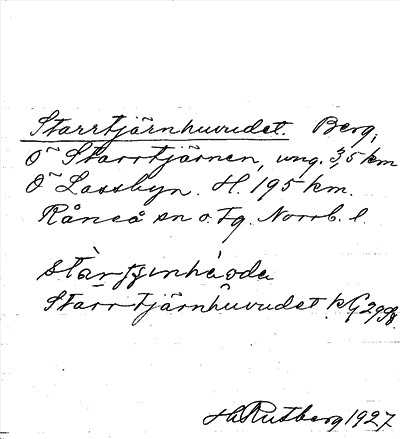 Starrtjärnhuvudet. Berg,
O~ Starrtjärnen, ung. 3,5 km
O~ Lassbyn. H. 195 km.
Råneå sn o. Tg. Norrb. l.
Starrtjärnhuvudet
H. Rutberg 1927